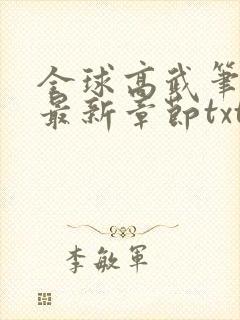 全球高武笔
最新章节txt
李敏军